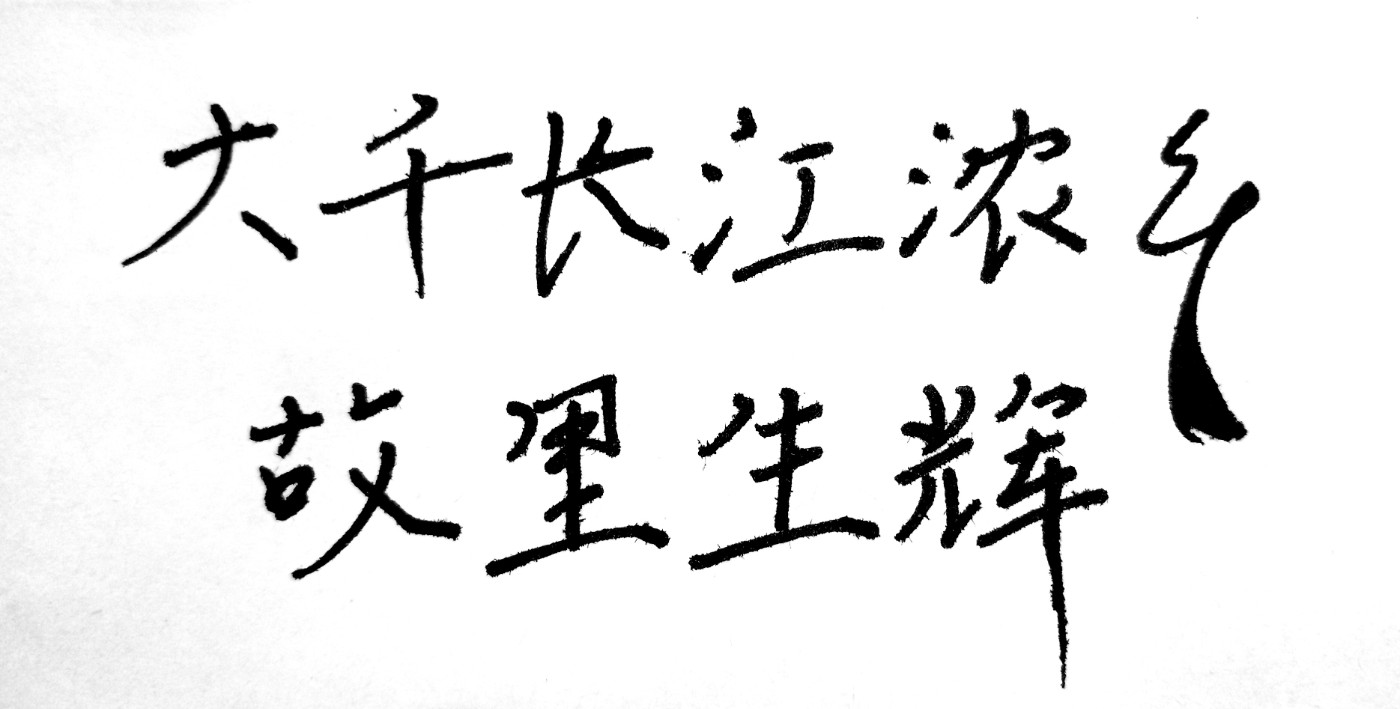 大千长江浓乡
故里生辉